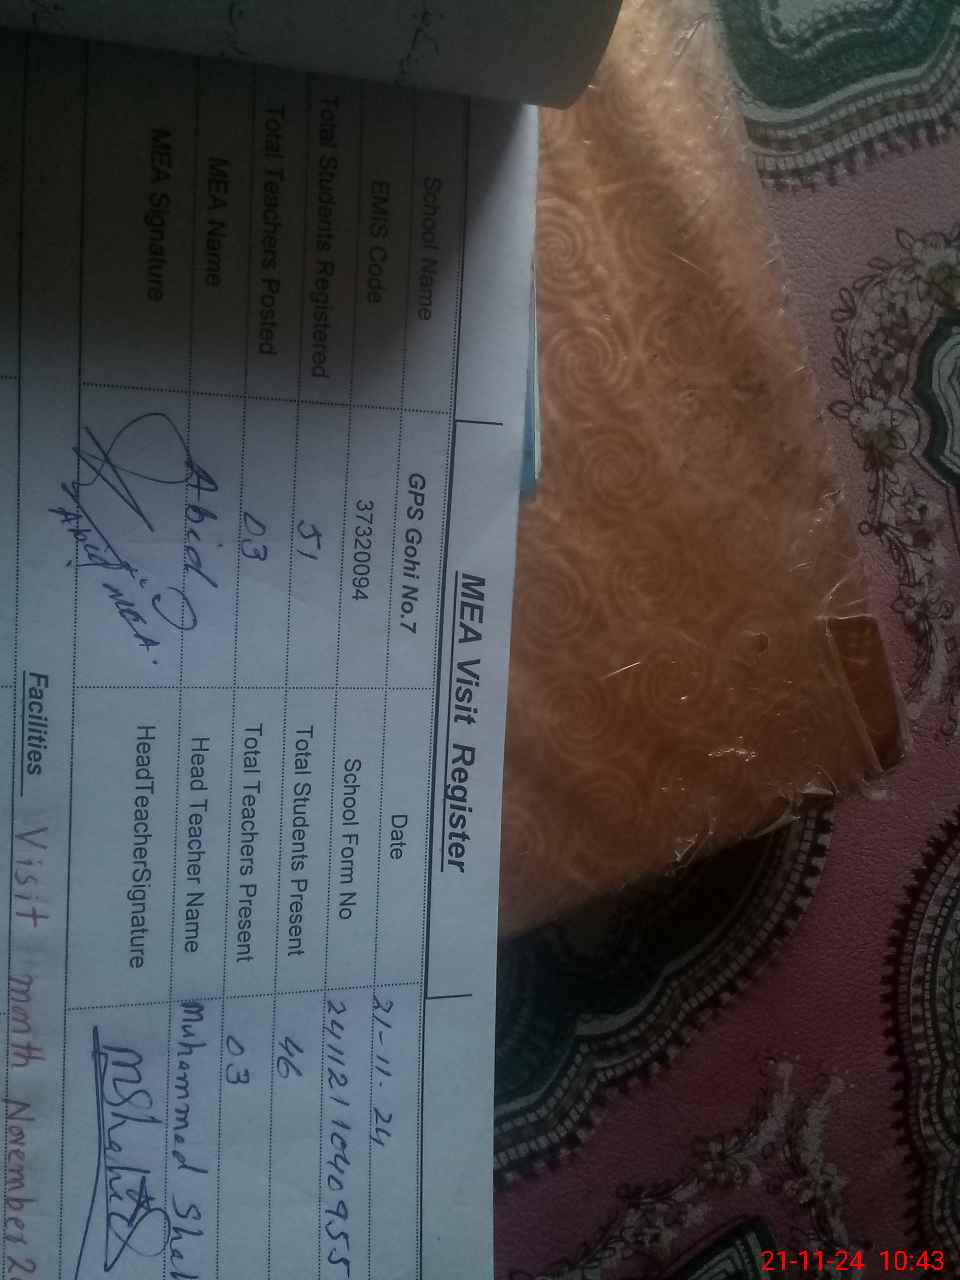 MEA Visit Register
School Name GPS Gohi No.7 Date 21-11-24
EMIS Code 37320094 School Form No 2411211040955
Total Students Registered 51 Total Students Present 46
Total Teachers Posted 03 Total Teachers Present 03
MEA Name Abid Head Teacher Name Muhammad
MEA Signature Abid MEA. HeadTeacherSignature
Facilities
Visit month November
21-11-24 10:43